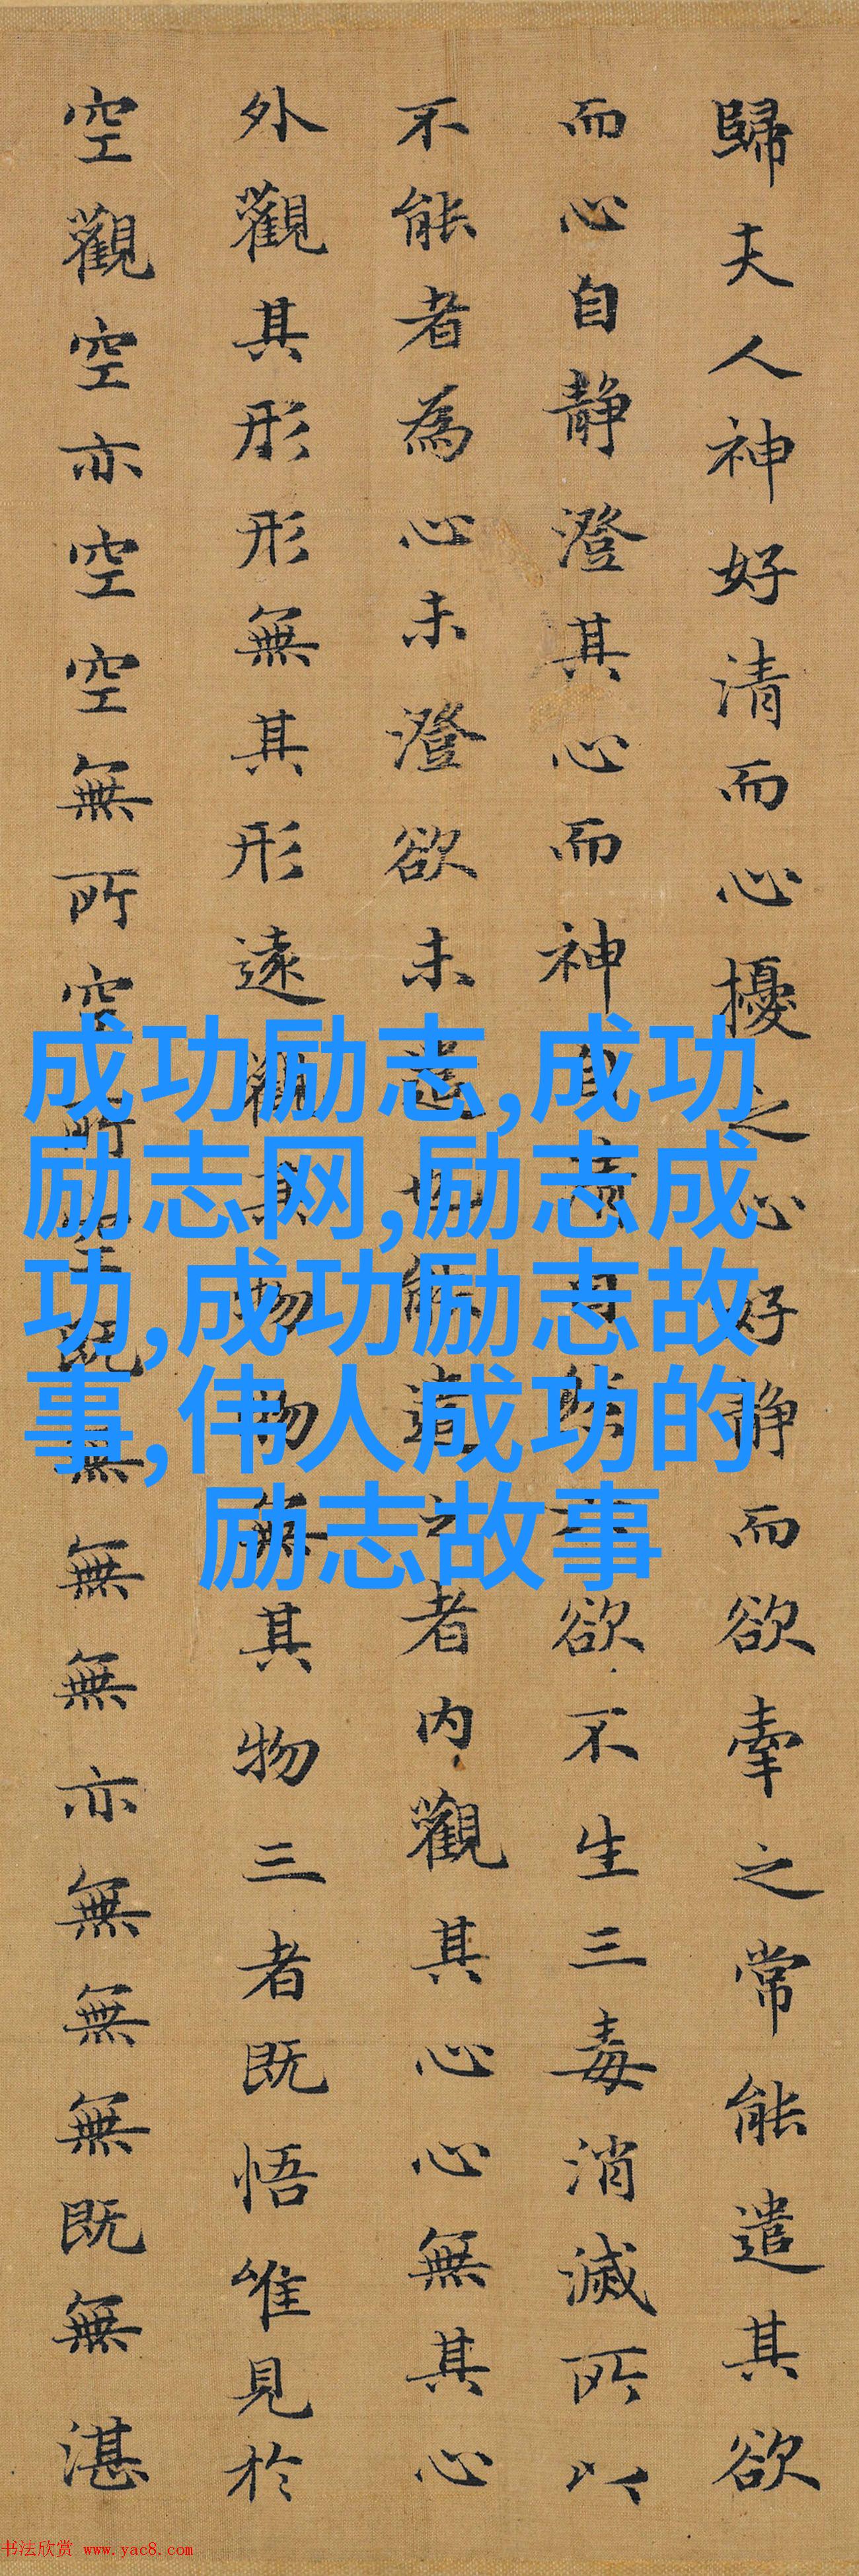 歸夫人神好清而心擾之心好静而欲牽之常能遣其欲
而心自静澄其心而神自清自然六欲不生三毒消滅所以
不能者為心未澄欲未遣也能遣之者内觀其心心無其心
外觀其形形無其形遠觀其物物無其物三者既悟唯見於
空觀空亦空空無所空所空既無無無亦無無無既無湛
成功励志,成功
励志网,励志成
功,成功励志故
事,伟人成功的
励志故事
书法欣赏 www.yac8.com